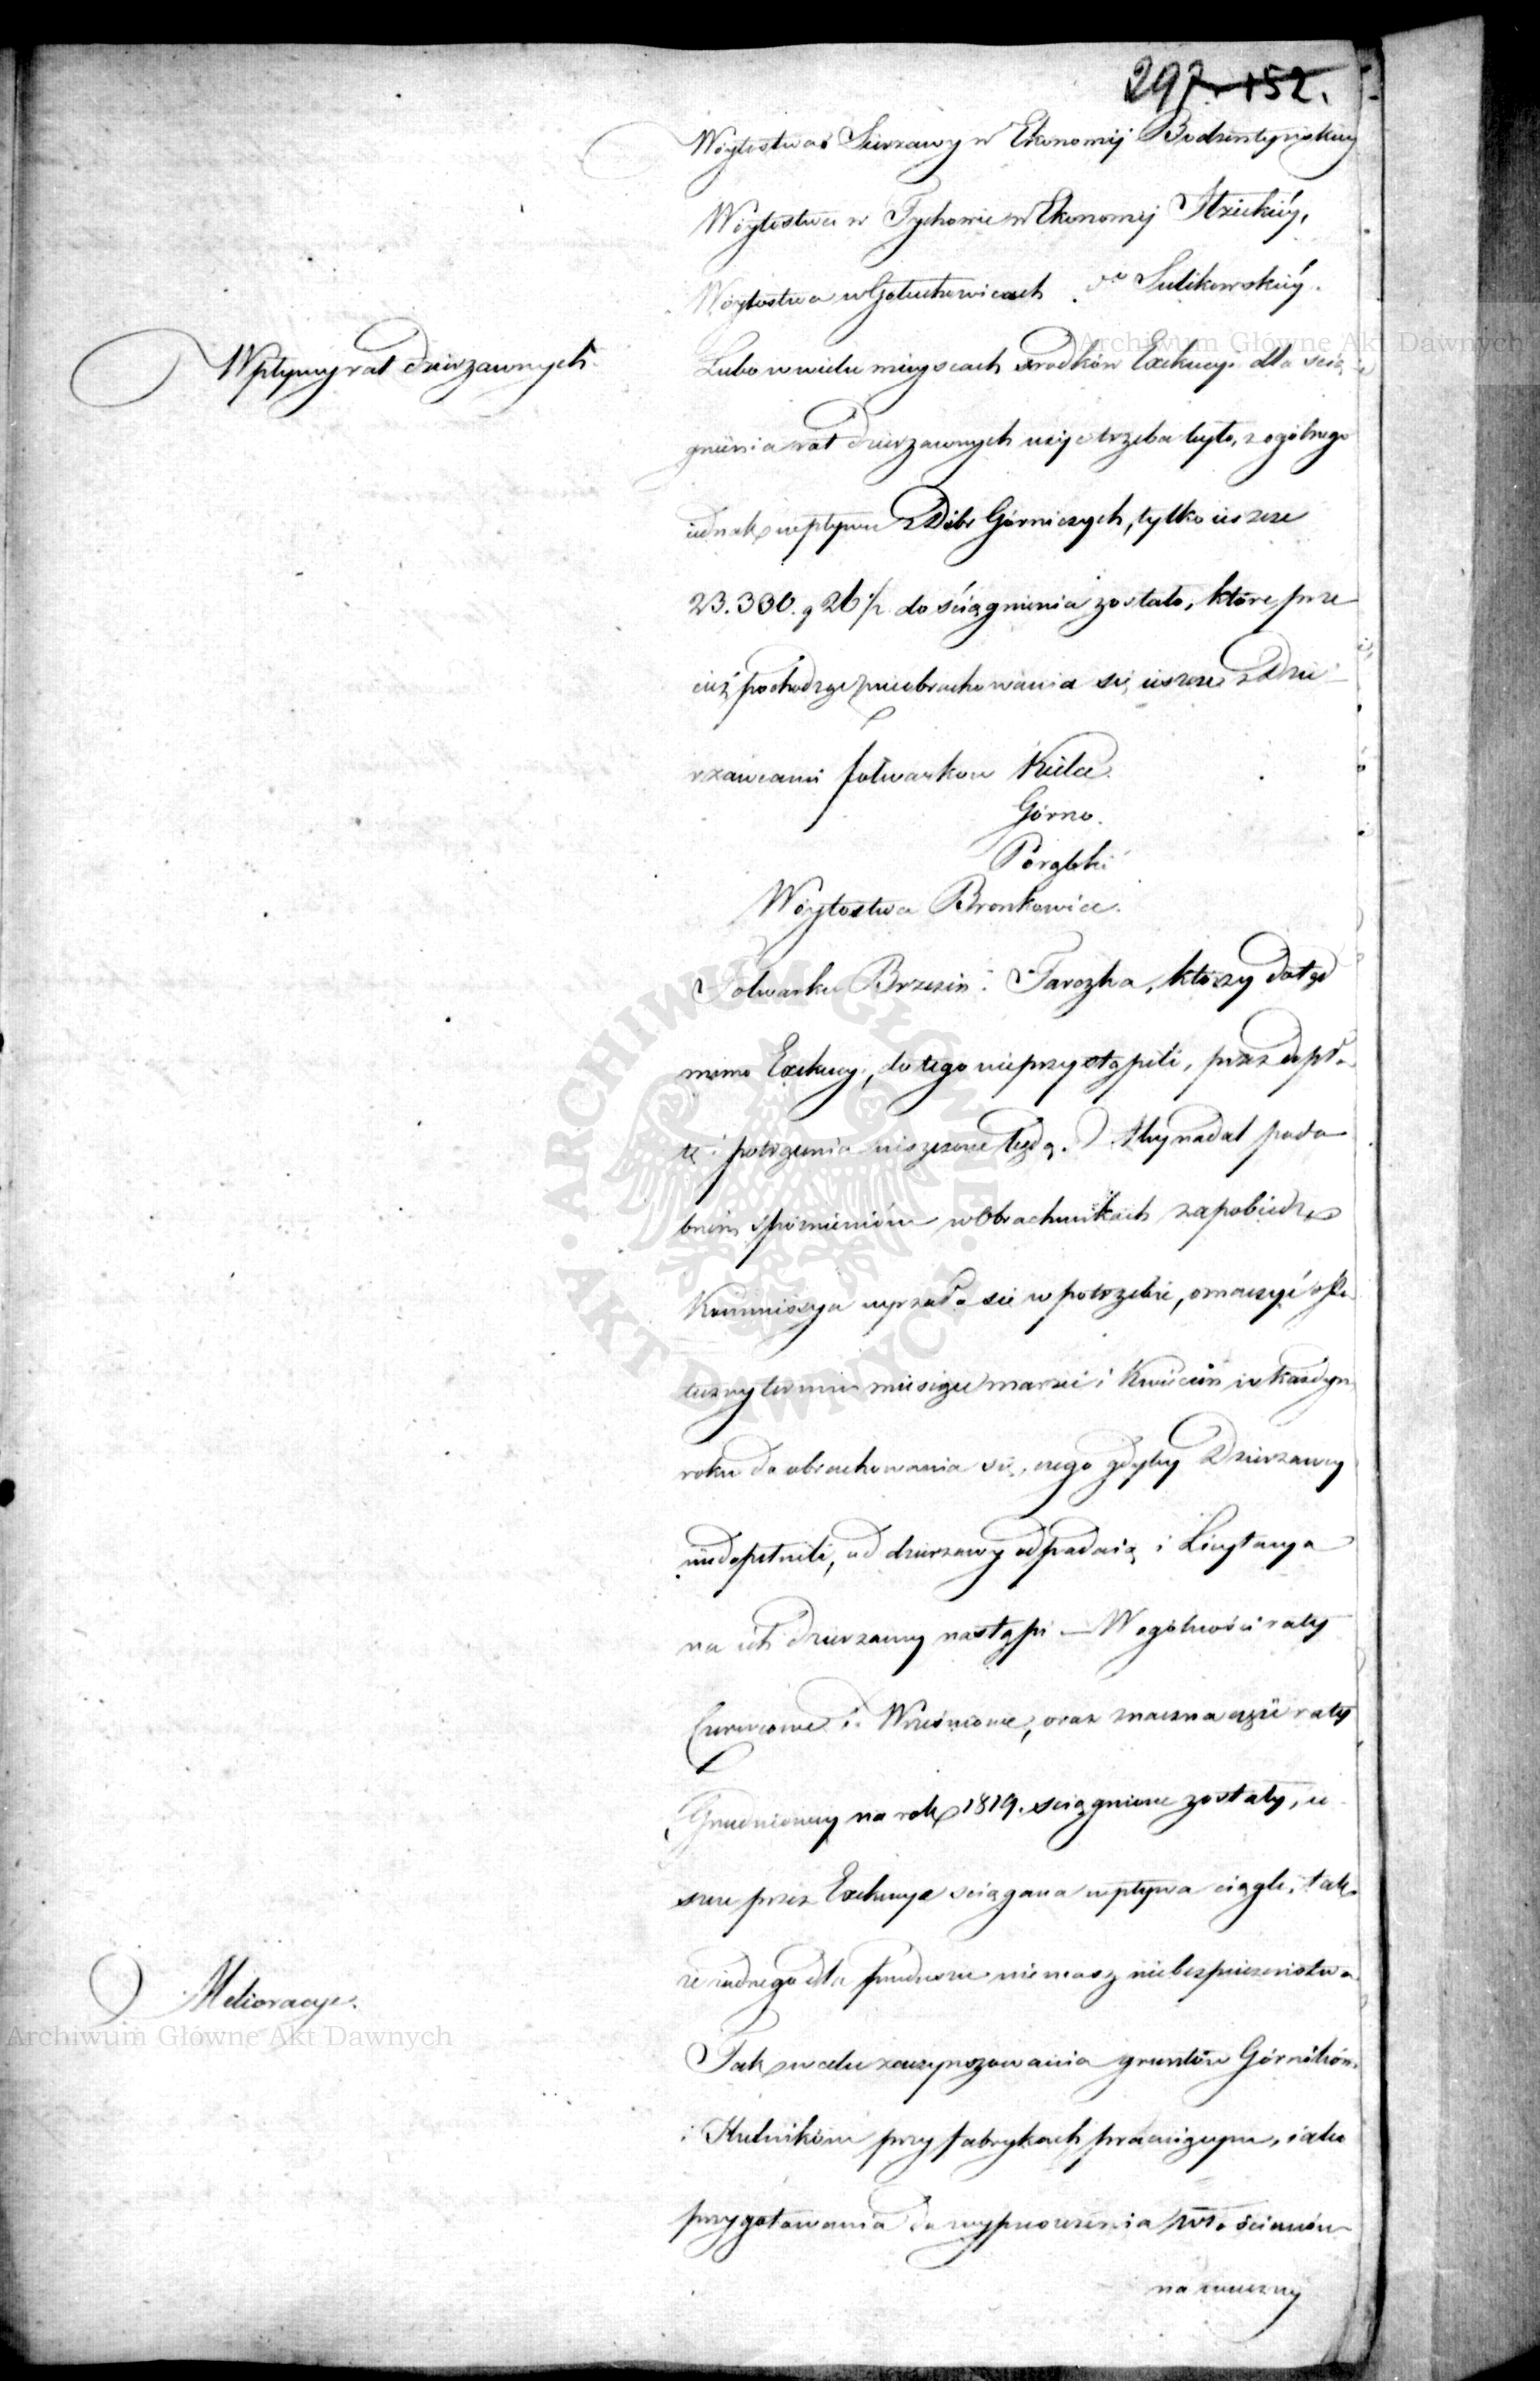 297. 152.
Woytostwa Sierzawy w Ekonomij Bodzentynskiey
Woytostwa w Tychowie w Ekonomij Itzeckiéy,
Woytostwa w Gołuchowicach do Sulikowskiéy.
Wpływy rat dzierzawnych.
Lubo w wielu mieyscach srodków Exekucyi dla scią
gnienia rat dzierzawnych użyć trzeba było, z ogólnego
iednak wpływu z Dóbr Górniczych, tylko ieszcze
23.330. g 26 1/2 do ściągnienia zostało, które prze
cież pochodzą z nieobrachowania się ieszcze z Dzie
rzawcami folwarkow Kielce.
Górno.
Porąbki
Woytostwa Bronkowice.
Folwarku Brzezin i Tarczka, którzy dotąd
mimo Exekucyi, do tego nieprzystąpili, przez dopła
tę i potrącenia uiszczone będą. Aby nadal podo
bnim spóznienióm w Obrachunkach zapobiedz
Kommissya uyrzała się w potrzebie, oznaczyć osta
teczny termin miesiące marzec i Kwiecień w każdym
roku do obrachowania się, czego gdyby Dzierzawcy
niedopełnili, od dzierzawy odpadaią i Licytacya
na ich dzierzawy nastąpi — W ogólności raty
Czerwcowe i Wrześniowe, oraz znaczna część raty
Grudniowey na rok 1819. sciągnione zostały, ie
szcze przez Exekucyą sciągana wpływa ciągle, tak
że żadnego dla funduszu niemasz niebezpieczenstwa.
Melioracye.
Tak w celu zaczynszowania gruntów Górników
i Hutników przy fabrykach pracuiącym, iako
przygotowania do wypuszczenia włościanóm
na wieczny
Archiwum Główne Akt Dawnych
Archiwum Główne Akt Dawnych
ARCHIWUM GŁÓWNE · AKT DAWNYCH ·